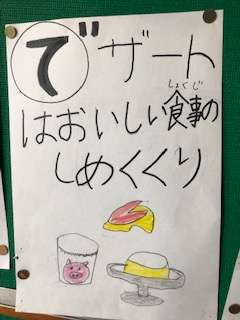 でザート
はおいしい食事の
しょくじ
しめくくり